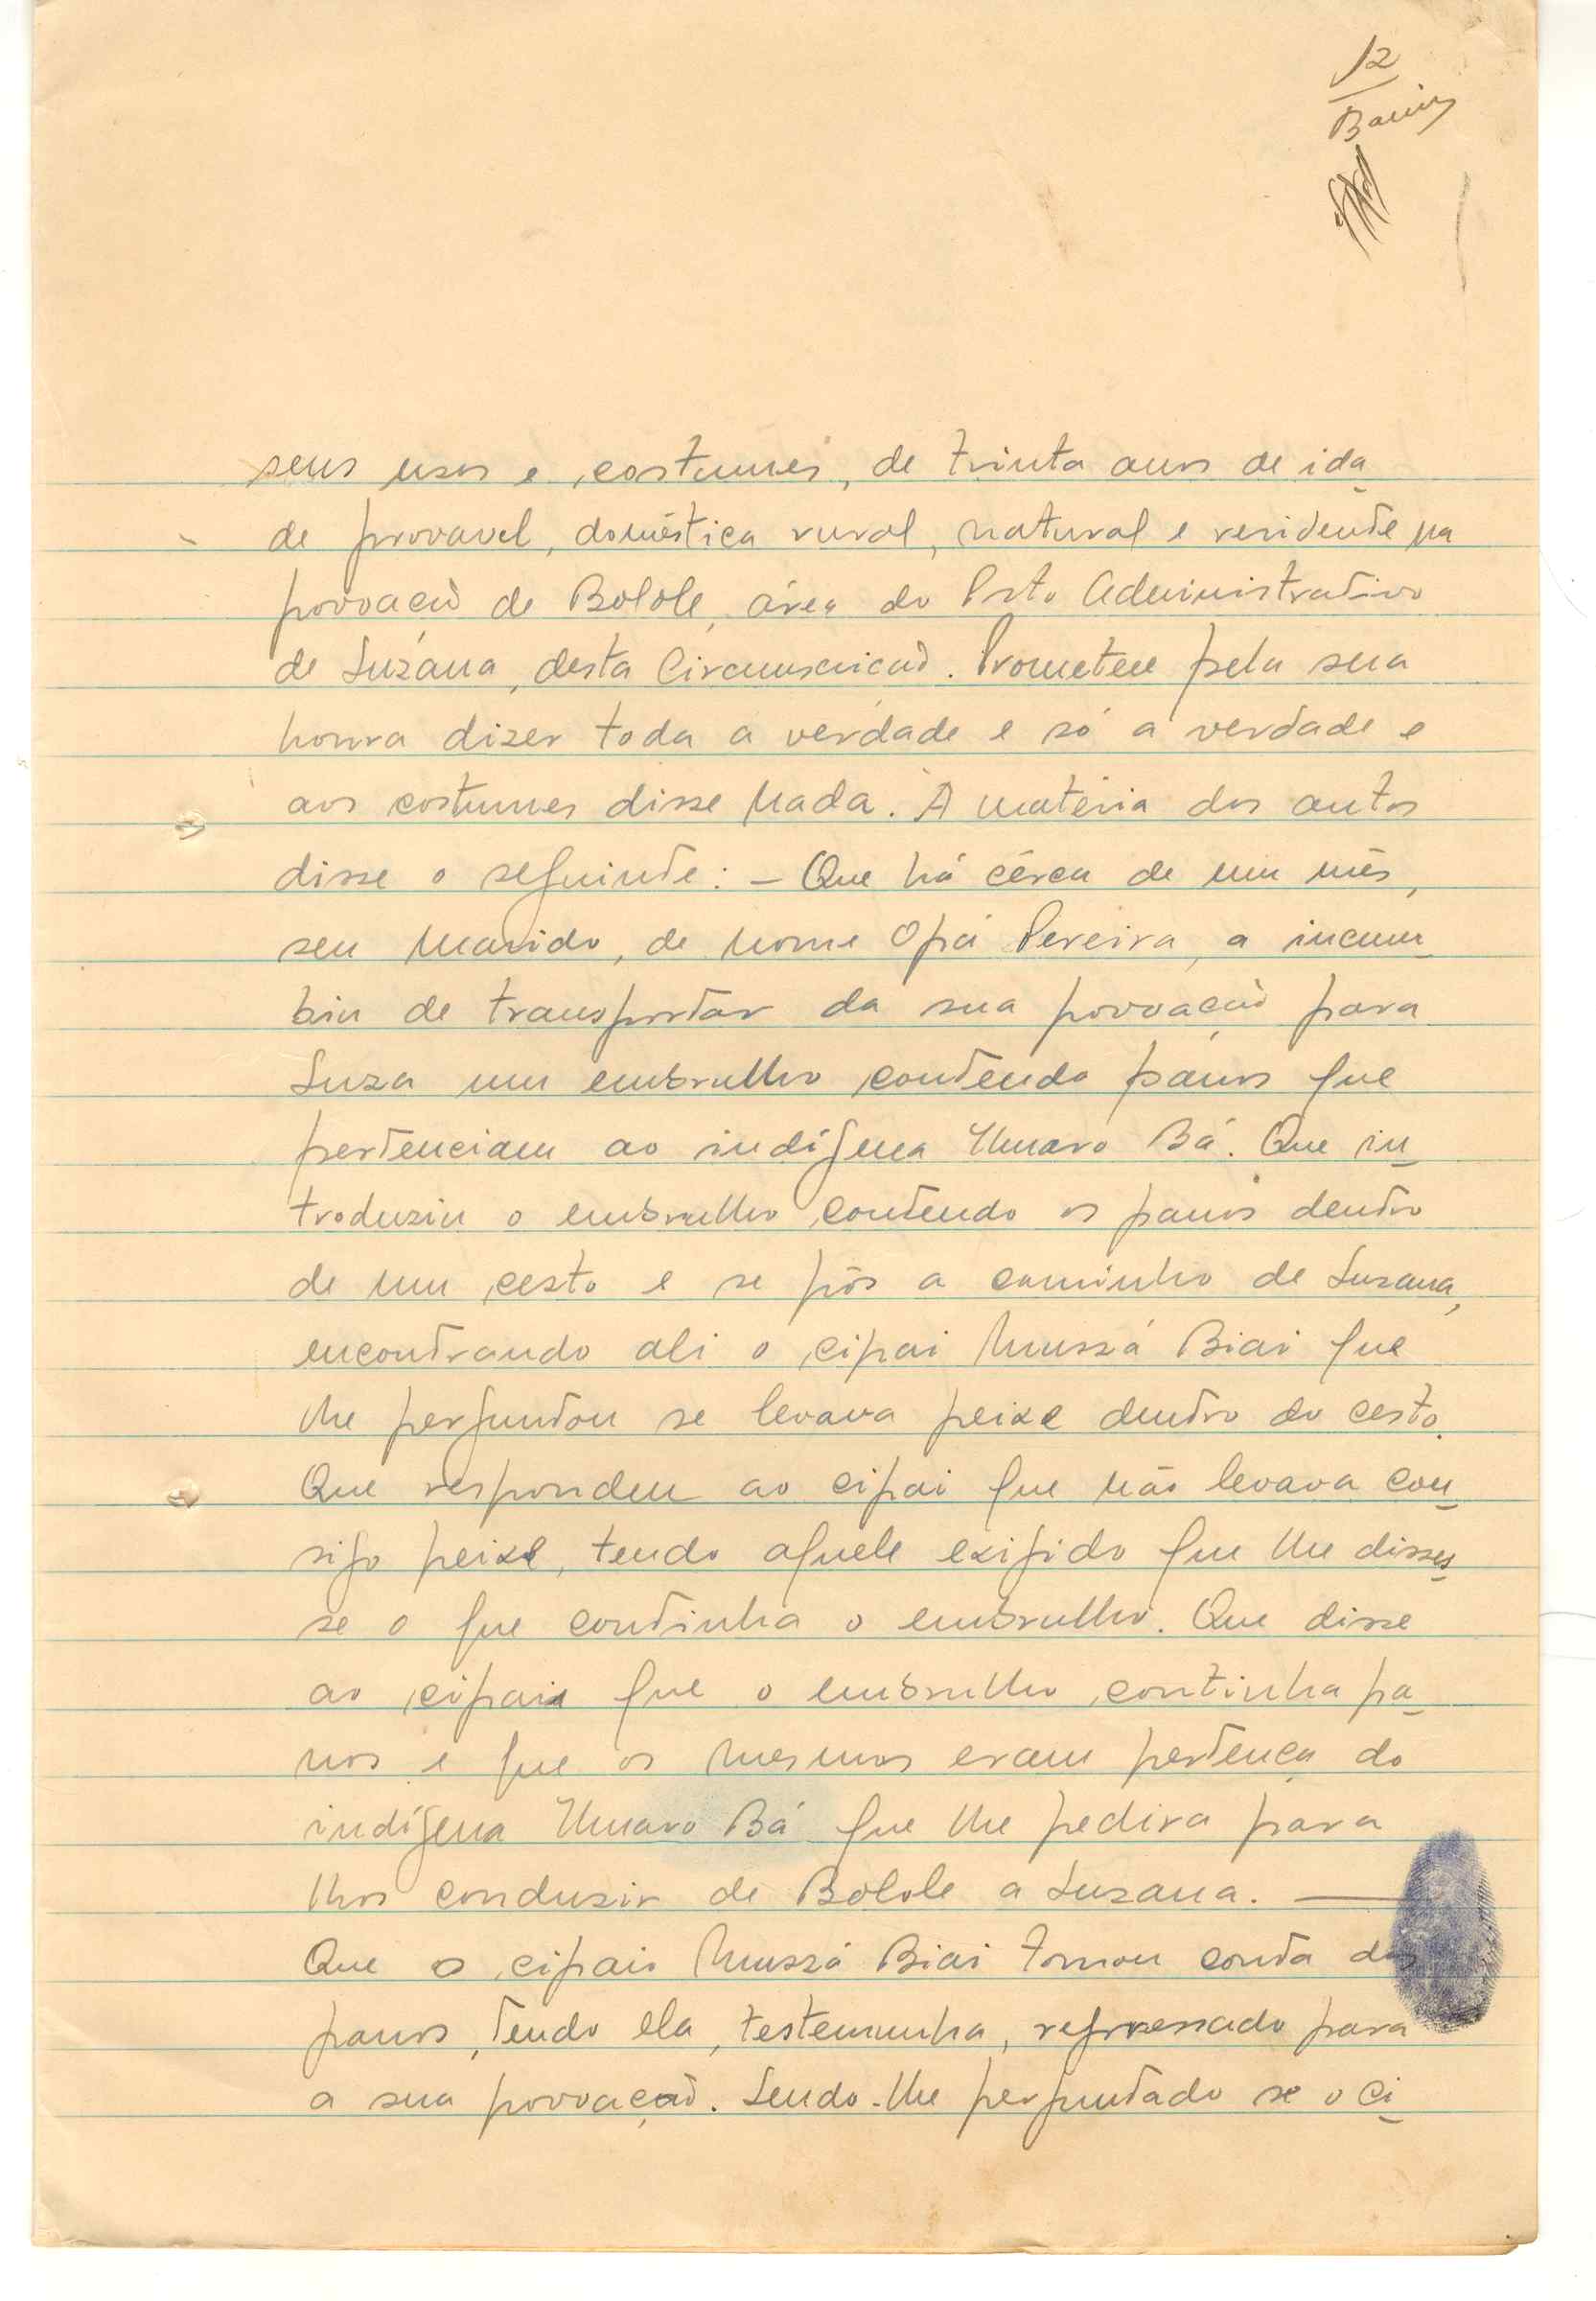 12
seus usos e costumes, de trinta anos de ida
de provavel, doméstica rural, natural e residente na
povoação de Bolole, área do Posto Administrativo
de Suzana, desta Circunscrição. Prometeu pela sua
honra dizer toda a verdade e só a verdade e
aos costumes disse nada. À matéria dos autos
disse o seguinte: - Que há cêrca de um mês,
seu marido, de nome Opá Pereira, a incum-
biu de transportar da sua povoação para
Suza um embrulho contendo panos que
pertenciam ao indígena Umaro Bá. Que in-
troduziu o embrulho contendo os panos dentro
de um cesto e se pôs a caminho de Suzana,
encontrando ali o cipai Mussá Biai que
lhe perguntou se levava peixe dentro do cesto.
Que respondeu ao cipai que não levava con-
sigo peixe, tendo aquele exigido que lhe disses-
se o que continha o embrulho. Que disse
ao cipai que o embrulho continha pa-
nos e que os mesmos eram pertença do
indígena Umaro Bá que lhe pedira para
lhos conduzir de Bolole a Suzana. —
Que o cipaio Mussá Biai tomou conta dos
panos, tendo ela, testemunha, regressado para
a sua povoação. Sendo-lhe perguntado se o ci-